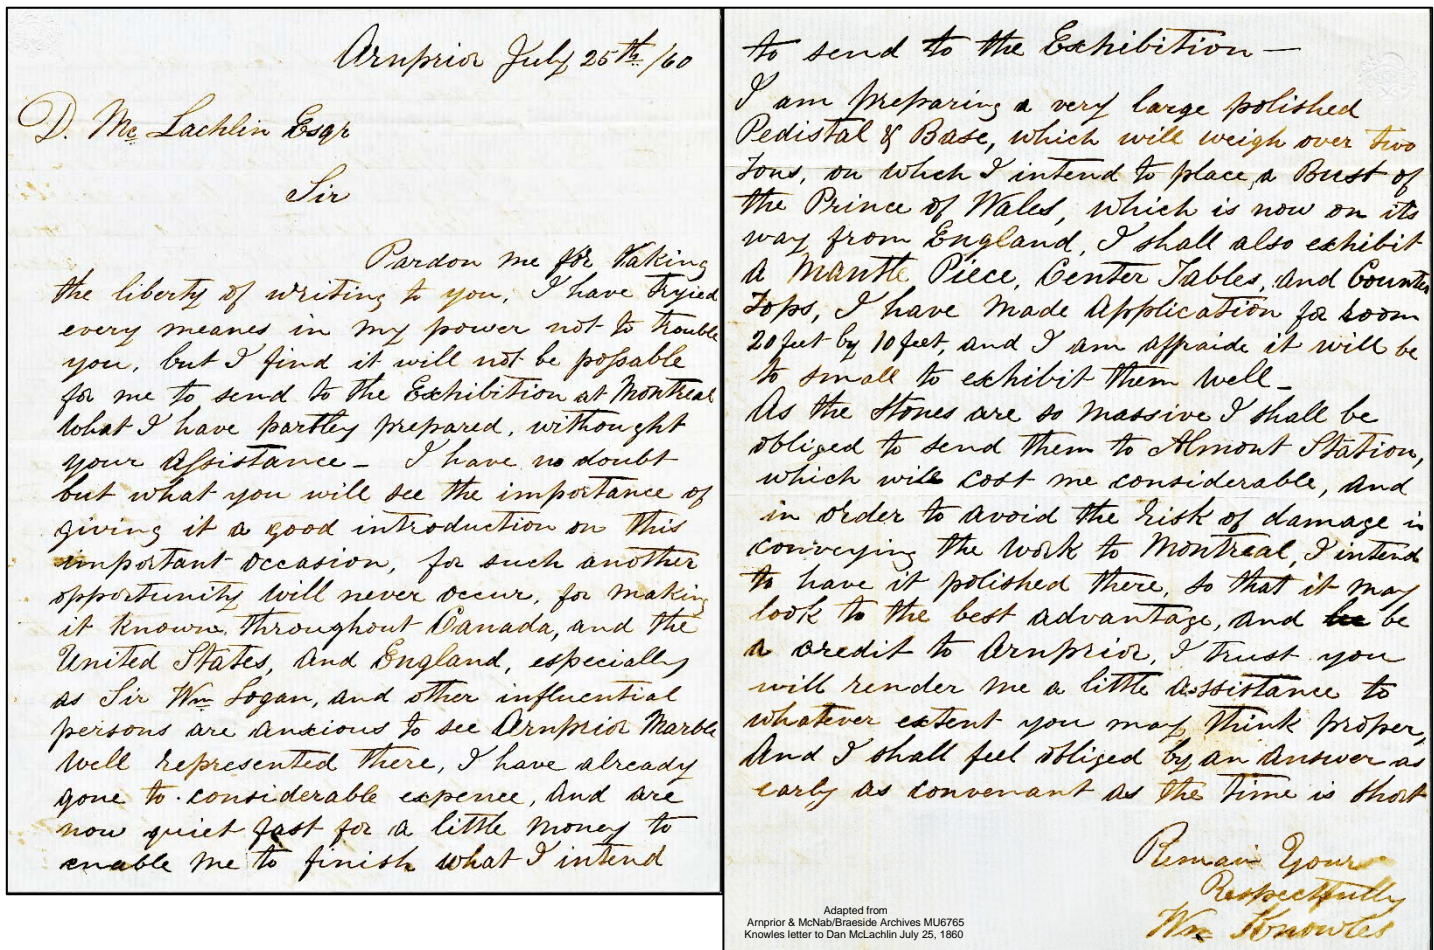 Arnprior July 25th /60
D. Mc Lachlin Esqr
Sir
Pardon me for taking
the liberty of writing to you, I have tryied
every meanes in my power not to trouble
you, but I find it will not be possable
for me to send to the Exhibition at Montreal
what I have partley prepared, withought
your assistance – I have no doubt
but what you will see the importance of
giving it a good introduction on this
important occasion, for such another
opportunity will never occur, for making
it known throughout Canada, and the
United States, and England, especially
as Sir Wm Logan, and other influential
persons are anxious to see Arnprior Marble
well represented there, I have already
gone to considerable expence, and are
now quiet fast for a little money to
enable me to finish what I intend
to send to the Exhibition —
I am preparing a very large polished
Pedistal & Base, which will weigh over two
Tons, on which I intend to place, a Bust of
the Prince of Wales, which is now on its
way from England, I shall also exhibit
a Mantle Piece, Center Tables, and Counter
Tops, I have made application for room
20 feet by 10 feet, and I am affraide it will be
to small to exhibit them well –
As the stones are so massive I shall be
obliged to send them to Almont Station,
which will cost me considerable, and
in order to avoid the risk of damage in
conveying the work to Montreal, I intend
to have it polished there, so that it may
look to the best advantage, and be
a credit to Arnprior, I trust you
will render me a little assistance to
whatever extent you may think proper,
And I shall feel obliged by an answer as
early as convenant as the time is short
Remain Yours
Respectfully
Wm Knowles
Adapted from
Arnprior & McNab/Braeside Archives MU6765
Knowles letter to Dan McLachlin July 25, 1860